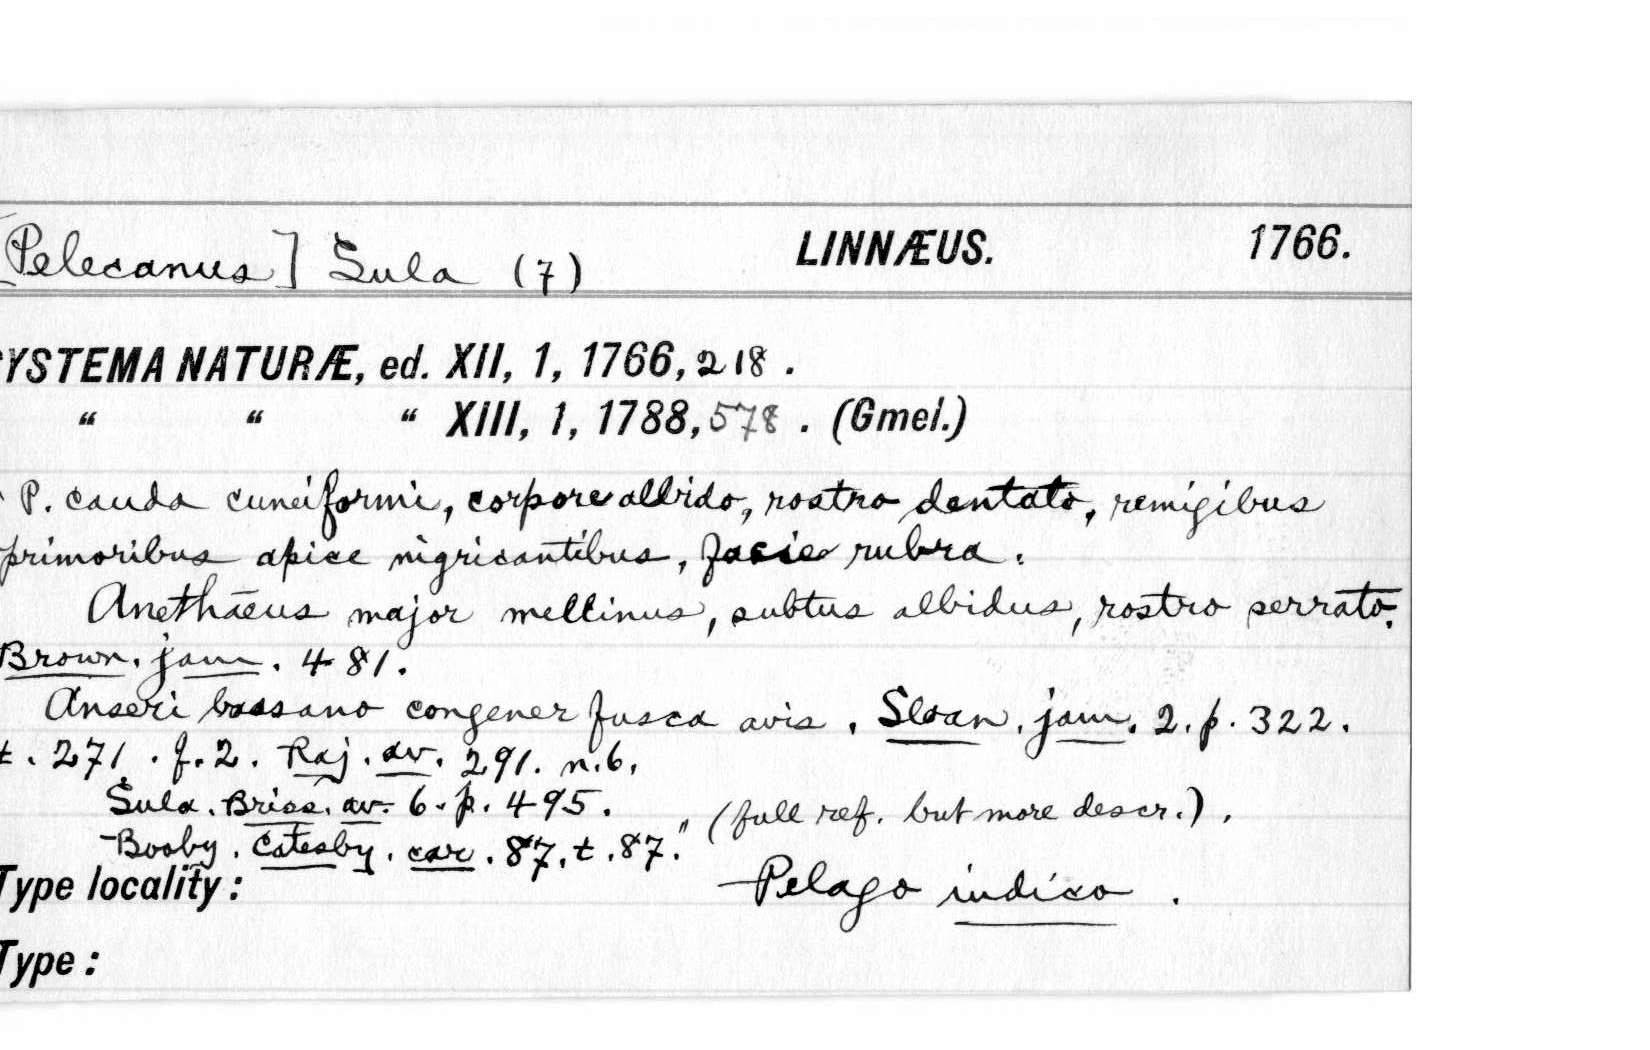 [Pelecanus] Sula (7) LINNÆUS. 1766.
SYSTEMA NATURÆ, ed. XII, 1, 1766, 218.
“ “ “ XIII, 1, 1788, 578. (Gmel.)
P. cauda cuneiformi, corpore albido, rostro dentato, remigibus
primoribus apice nigricantibus, facie rubra.
Anethæus major mellinus, subtus albidus, rostro serrato.
Brown. jam. 481.
Anseri bassano congener fusca avis. Sloan. jam. 2. p. 322.
t. 271. f. 2. Raj. av. 291. n. 6.
Sula. Briss. av. 6. p. 495.
Booby. Catesby. car. 87. t. 87." (full ref. but more descr.).
Type locality: Pelago indico.
Type: